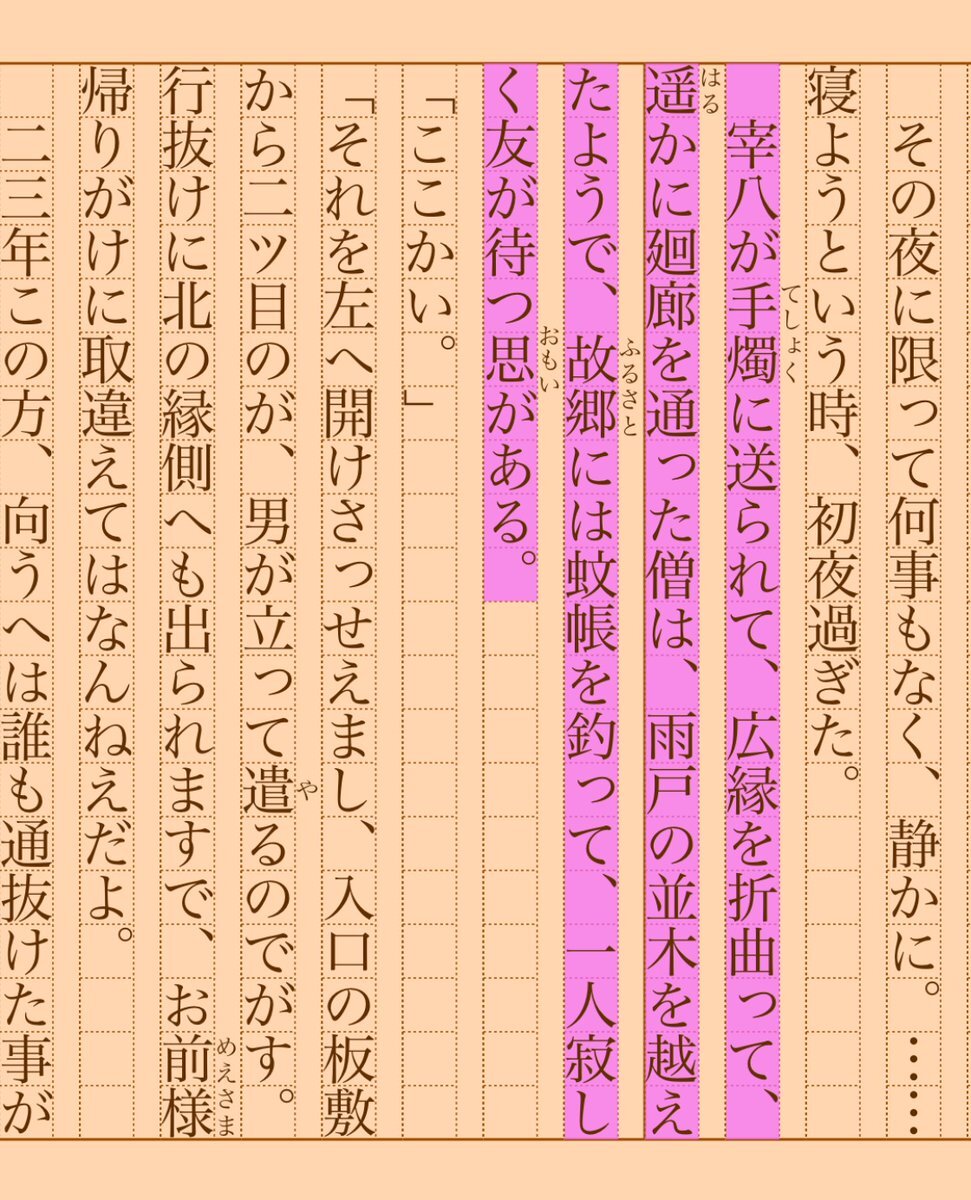 その夜に限って何事もなく、静かに。……
寝ようという時、初夜過ぎた。
宰八が手燭に送られて、広縁を折曲って、
てしょく
遥かに廻廊を通った僧は、雨戸の並木を越え
はる
たようで、故郷には蚊帳を釣って、一人寂し
ふるさと
く友が待つ思がある。
おもい
「ここかい。」
「それを左へ開けさっせえまし、入口の板敷
から二ツ目のが、男が立って遣るのでがす。
や
行抜けに北の縁側へも出られますで、お前様
めえさま
帰りがけに取違えてはなんねえだよ。
二三年この方、向うへは誰も通抜けた事が